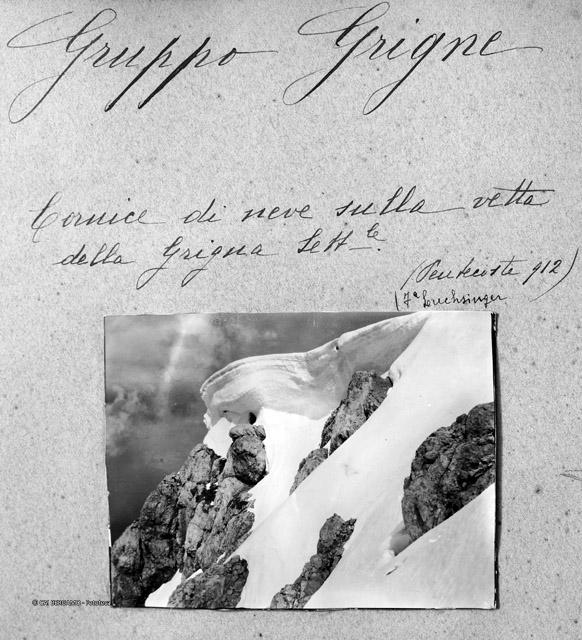 Gruppo Grigne
Cornice di neve sulla vetta
della Grigna Sett.le
(Pentecoste 912)
Luchsinger
© CAI BERGAMO - Fototeca